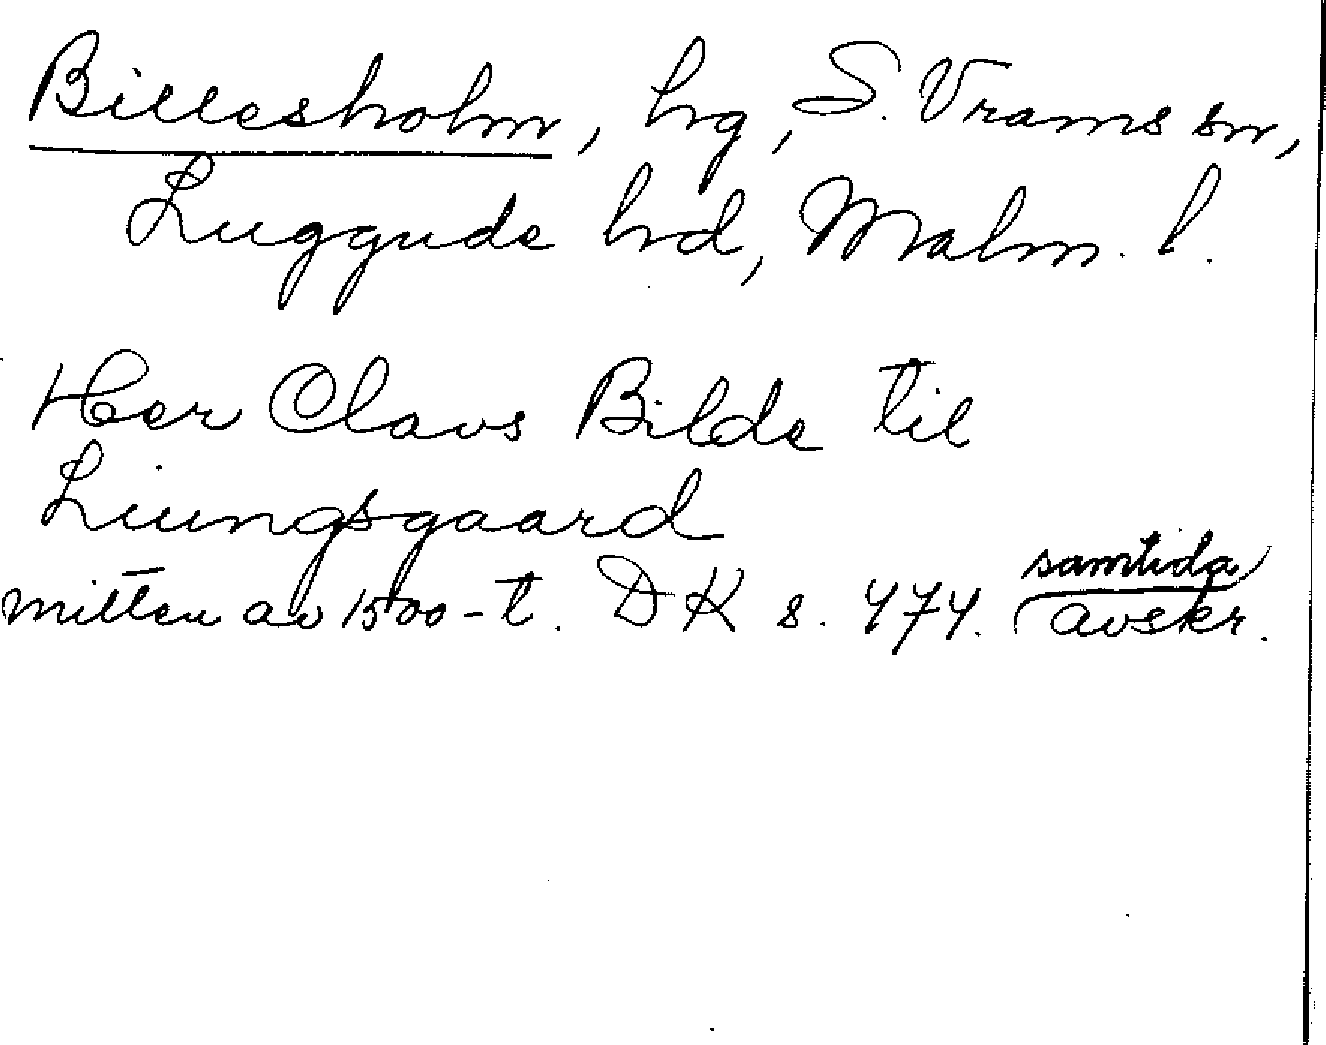 Billesholm, hg, S. Vrams sn,
Luggude hd, Malm. l.
Her Claus Bilde til
Liungsgaard
mitten av 1500-t. DK s. 474. samtida
avskr.